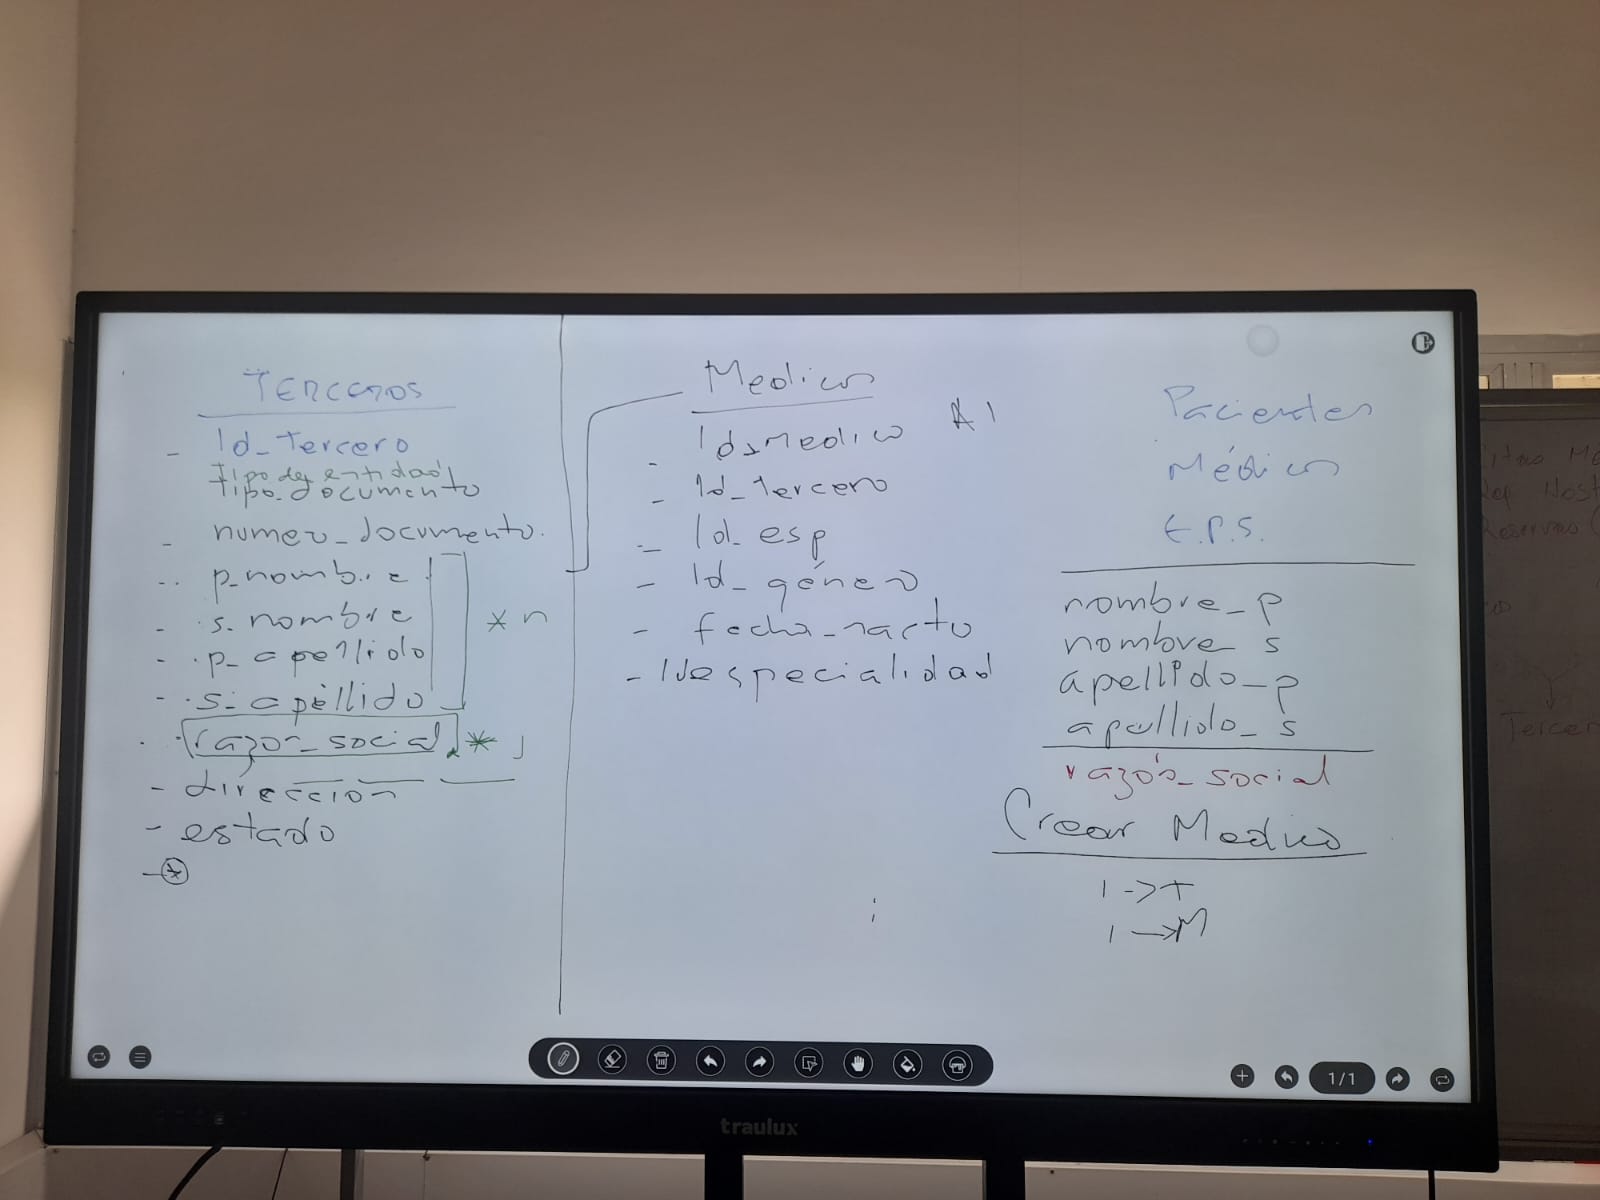 TERCEROS
- Id_Tercero
Tipo de entidad
Tipo_documento
- numero_documento.
-- p_nombre
- s_nombre
- p_apellido
- s_apéllido
* n
- razon_social * J
- dirección
- estado
- *
Medicos
- Id_medico A1
- Id_Tercero
- Id_esp
- Id_género
- fecha_nacto
- Idespecialidad
Pacientes
Médicos
E.P.S.
nombre_p
nombre_s
apellido_p
apellido_s
razón_social
Crear Medico
1 -> T
1 -> M
1/1
traulux
Tercer